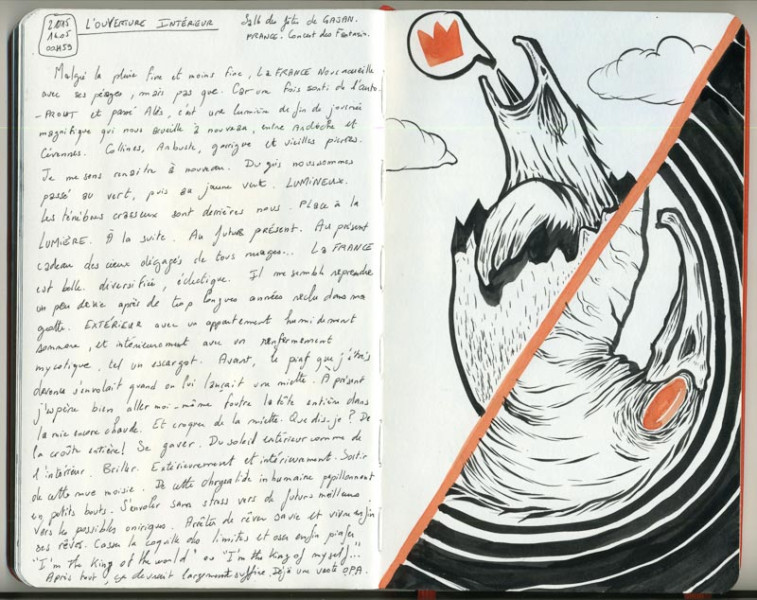 21#5
14.05
00H59
L'OUVERTURE INTÉRIEUR
Salle des fêtes de GAJAN.
FRANCE. Concert des
Malgré la pluie fine et moins fine, LA FRANCE Nous accueille
avec ses péages, mais pas que. Car une fois sortis de l'auto-
-ROUTE et passé Alès, c'est une lumière de fin de journée
magnifique qui nous accueille à nouveau, entre Ardèche et
Cévennes. Collines, Arbuste, garrigue et vieilles pierres.
Je me sens renaître à nouveau. Du gris nous sommes
passé au vert, puis au jaune vert. LUMINEUX.
Les ténèbres crasseux sont derrières nous. PLACE à la
LUMIÈRE. À la suite. Au futur PRÉSENT. Au présent
cadeau des cieux dégagés de tous nuages... LA FRANCE
est belle. diversifiée, éclectique. Il me semble reprendre
un peu de vie après de trop longues années reclu dans ma
grotte. EXTÉRIEUR avec un appartement humidement
sommaire, et intérieurement avec un renfermement
mycotique, tel un escargot. Avant, le piaf que j'étais
devenu s'envolait quand on lui lançait une miette. À présent
j'espère bien aller moi-même foutre la tête entière dans
la mie encore chaude. Et croquer de la miette. Que dis-je ? De
la croûte entière ! Se gaver. Du soleil extérieur comme de
l'intérieur. Briller. Extérieurement et intérieurement. Sortir
de cette mue moisie. De cette chrysalide inhumaine papillonnent
en petits bouts. S'envoler sans stress vers de futurs meilleurs
vers les possibles oniriques. Arrêter de rêver sa vie et vivre enfin
ses rêves. Casser la coquille des limites et oser enfin piafer
"I'm the King of the world" ou "I'm the King of myself"...
Après tout, ça devrait largement suffire. Déjà une vaste OPA.